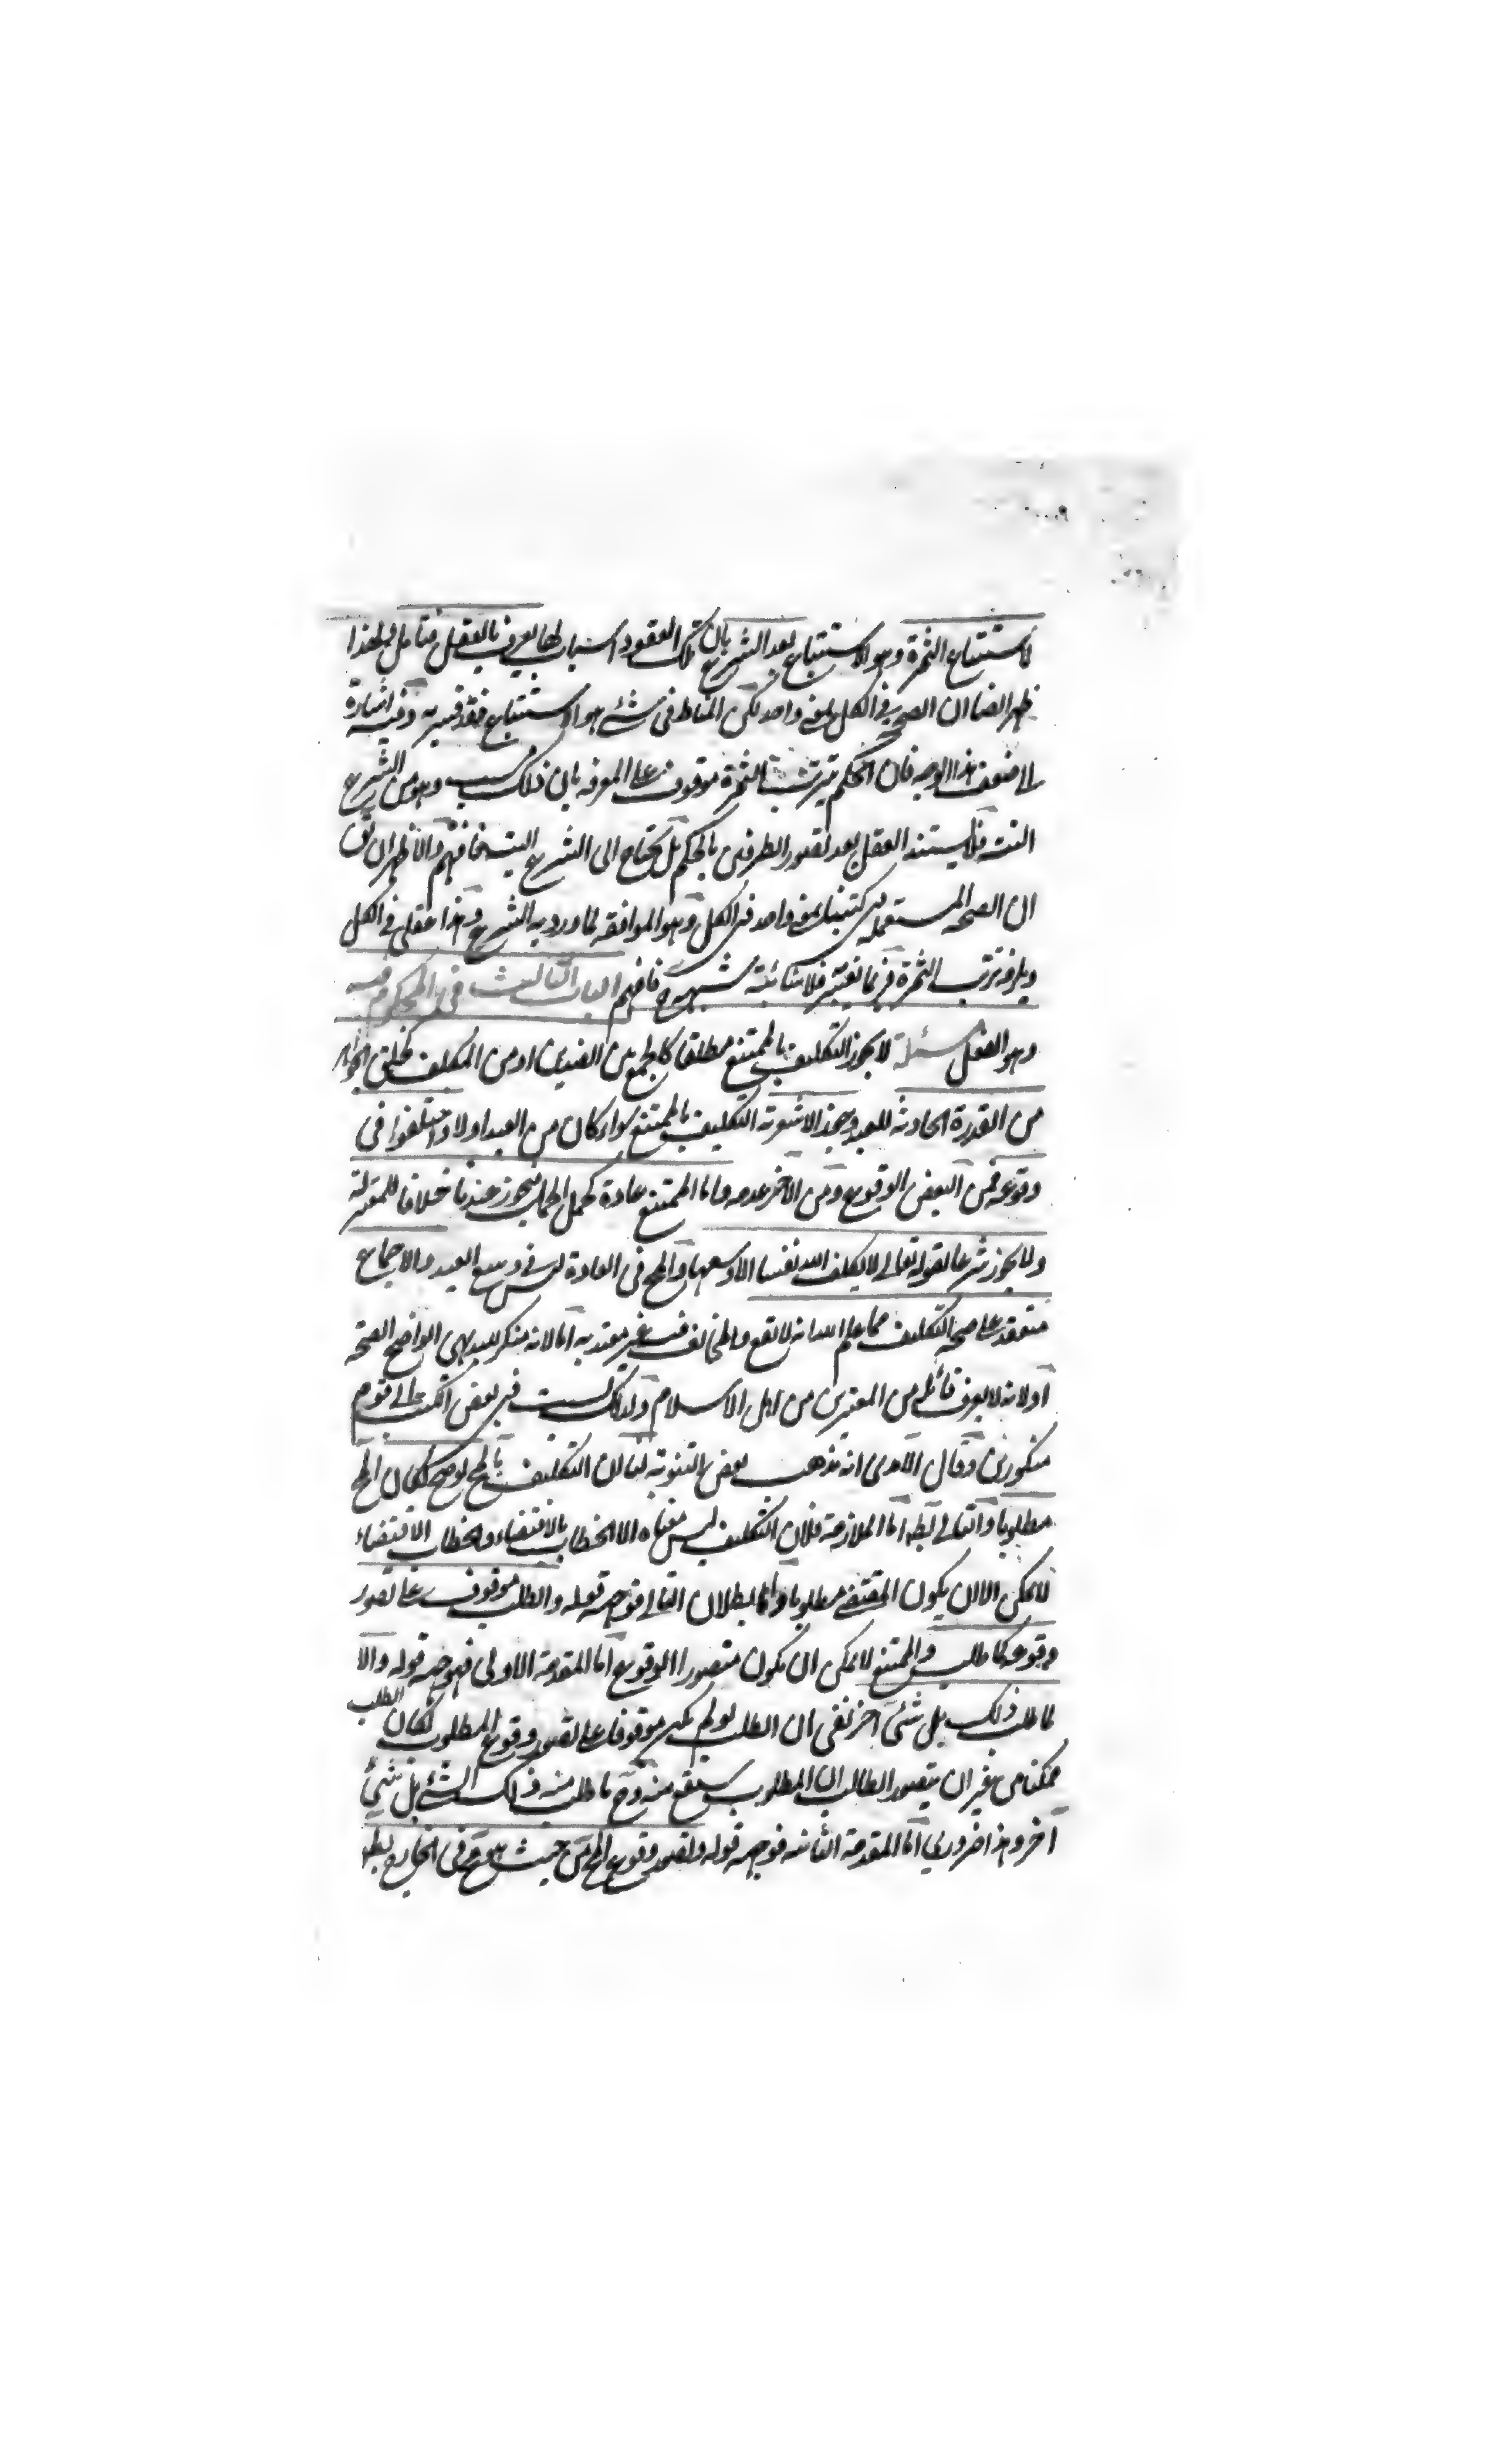 لاستتباع الثمرة وهو الاستتباع بعد الشرع بان تلك العقود اسباب لها يعرف بالعقل فتامل ولهذا
ظهر ايضا ان الصحة في الكل بمعنى واحد لكن المناط في شئ هو الاستتباع فقد فسر به وفيه اشارة
الى ضعف هذا الوجه فان الحكم بترتب الثمرة موقوف على المعرفة بان ذلك سبب وهو من الشرع
البتة فلا يستند العقل بعد تصور الطرفين بالحكم بل يحتاج الى الشرع البتة فافهم والاظهر ان يق
ان الصحة المستعملة في كتبنا بمعنى واحد في الكل وهو الموافقة لما ورد به الشرع وهذا عقلي في الكل
ويلزمه ترتب الثمرة فربما تفسر به فلا شائبة شبهة ح فافهم الباب الثالث في المحكوم فيه
وهو الفعل مسئلة لا يجوز التكليف بالممتنع مطلقا كالجمع بين الضدين او من المكلف كخلق الجواهر
من القدرة الحادثة للعبد وجوز الاشعرية التكليف بالممتنع سواء كان من العبد اولا واختلفوا في
وقوعه فمن البعض الوقوع ومن الآخر عدمه واما الممتنع عادة كحمل الجبل فيجوز عندنا خلافا للمعتزلة
ولا يجوز شرعا لقوله تعالى لا يكلف الله نفسا الا وسعها والمح في العادة ليس في وسع العبد والاجماع
منعقد على صحة التكليف بما علم الله انه لا يقع والمخالف فيه غير معتد به اما لانه منكر للبديهي الواضح الصحة
او لانه لا يعرف قائله من المعتبرين من اهل الاسلام ولذلك نسبت في بعض الكتب الى قوم
منكورين وقال الآمدي انه مذهب بعض الثنوية لنا ان التكليف بالمح لو صح لكان المح
مطلوبا والتالي بط اما الملازمة فلان التكليف ليس معناه الا الخطاب بالاقتضاء والخطاب الاقتضاء
لا يمكن الا ان يكون المقتضى مطلوبا واما بطلان التالي فوجهه قوله والطلب موقوف على تصور
وقوعه كما طلب والممتنع لا يمكن ان يكون متصورا الوقوع اما المقدمة الاولى فوجهه قوله والا
لما طلب ذلك بل شئ آخر نعني ان الطلب لو لم يكن موقوفا على تصور وقوع المطلوب لكان الطلب
ممكنا من غير ان يتصور الطالب ان المطلوب سيقع منه وح ما طلب منه ذلك الشئ بل شئ
آخر وهذا ضروري اما المقدمة الثانية فوجهه قوله وتصور وقوع المح من حيث هو مح في الخارج بط